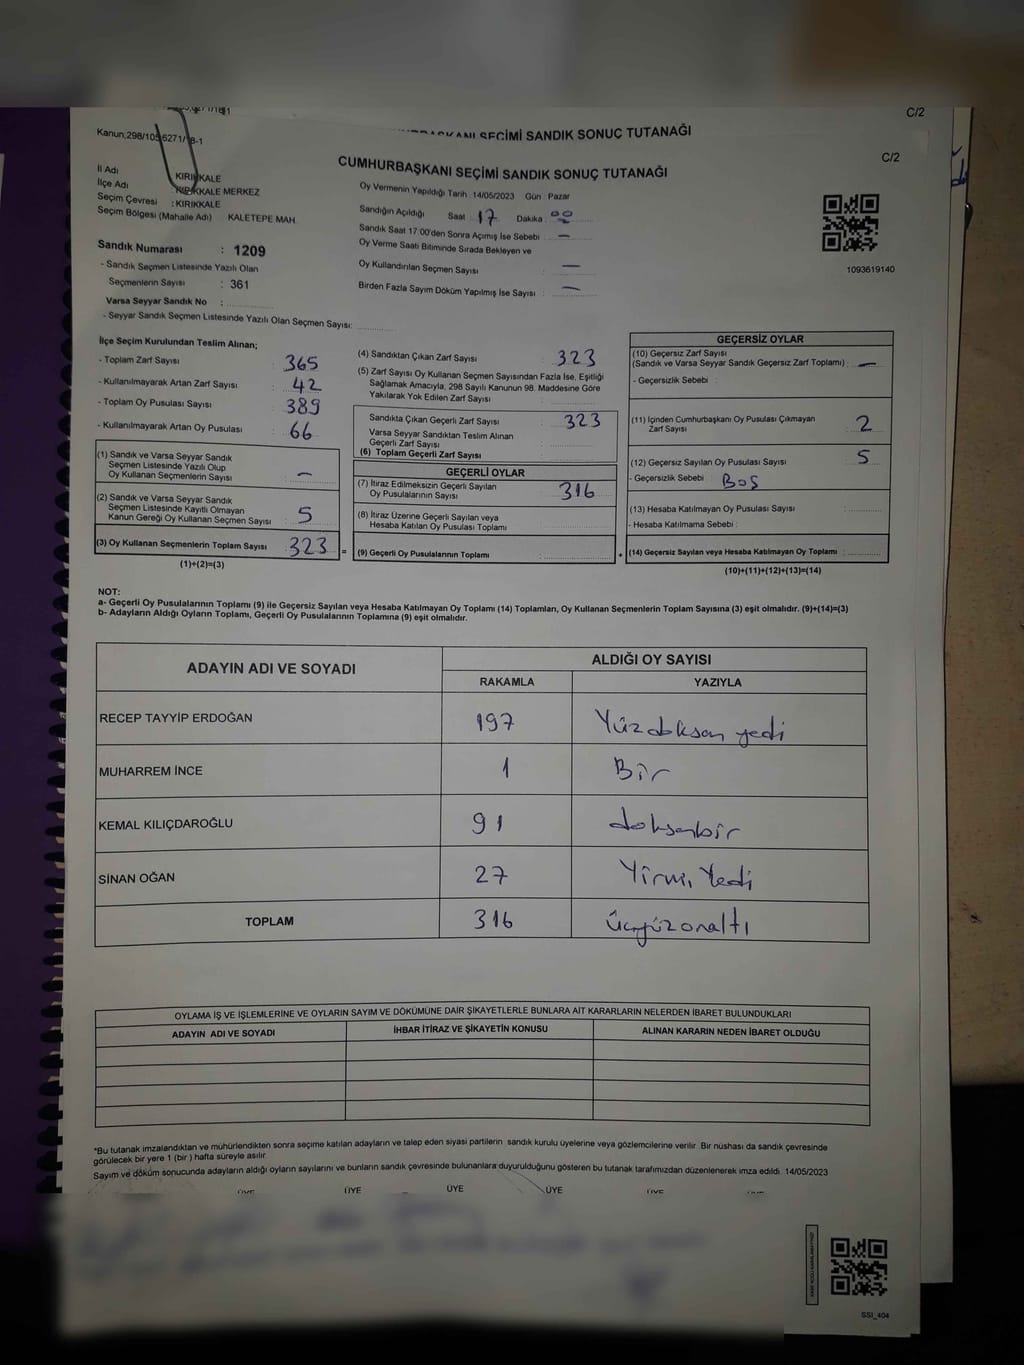 C/2
CUMHURBAŞKANI SEÇİMİ SANDIK SONUÇ TUTANAĞI
Kanun;298/105
6271/18-1
C/2
CUMHURBAŞKANI SEÇİMİ SANDIK SONUÇ TUTANAĞI
İl Adı KIRIKKALE
İlçe Adı KIRIKKALE MERKEZ
Seçim Çevresi : KIRIKKALE
Seçim Bölgesi (Mahalle Adı) KALETEPE MAH.
Sandık Numarası : 1209
- Sandık Seçmen Listesinde Yazılı Olan
Seçmenlerin Sayısı : 361
Varsa Seyyar Sandık No :
- Seyyar Sandık Seçmen Listesinde Yazılı Olan Seçmen Sayısı:
Oy Vermenin Yapıldığı Tarih : 14/05/2023 Gün : Pazar
Sandığın Açıldığı Saat 17 Dakika : 00
Sandık Saat 17:00'den Sonra Açımış İse Sebebi : —
Oy Verme Saati Bitiminde Sırada Bekleyen ve
Oy Kullandırılan Seçmen Sayısı : —
Birden Fazla Sayım Döküm Yapılmış İse Sayısı : —
1093619140
İlçe Seçim Kurulundan Teslim Alınan;
- Toplam Zarf Sayısı : 365
- Kullanılmayarak Artan Zarf Sayısı : 42
- Toplam Oy Pusulası Sayısı : 389
- Kullanılmayarak Artan Oy Pusulası : 66
(1) Sandık ve Varsa Seyyar Sandık
Seçmen Listesinde Yazılı Olup
Oy Kullanan Seçmenlerin Sayısı : —
(2) Sandık ve Varsa Seyyar Sandık
Seçmen Listesinde Kayıtlı Olmayan
Kanun Gereği Oy Kullanan Seçmen Sayısı : 5
(3) Oy Kullanan Seçmenlerin Toplam Sayısı : 323 =
(1)+(2)=(3)
(4) Sandıktan Çıkan Zarf Sayısı : 323
(5) Zarf Sayısı Oy Kullanan Seçmen Sayısından Fazla İse, Eşitliği
Sağlamak Amacıyla, 298 Sayılı Kanunun 98. Maddesine Göre
Yakılarak Yok Edilen Zarf Sayısı :
Sandıkta Çıkan Geçerli Zarf Sayısı : 323
Varsa Seyyar Sandıktan Teslim Alınan
Geçerli Zarf Sayısı :
(6) Toplam Geçerli Zarf Sayısı :
GEÇERLİ OYLAR
(7) İtiraz Edilmeksizin Geçerli Sayılan
Oy Pusulalarının Sayısı : 316
(8) İtiraz Üzerine Geçerli Sayılan veya
Hesaba Katılan Oy Pusulası Toplamı :
(9) Geçerli Oy Pusulalarının Toplamı : +
GEÇERSİZ OYLAR
(10) Geçersiz Zarf Sayısı
(Sandık ve Varsa Seyyar Sandık Geçersiz Zarf Toplamı) : —
- Geçersizlik Sebebi :
(11) İçinden Cumhurbaşkanı Oy Pusulası Çıkmayan
Zarf Sayısı : 2
(12) Geçersiz Sayılan Oy Pusulası Sayısı : 5
- Geçersizlik Sebebi : Boş
(13) Hesaba Katılmayan Oy Pusulası Sayısı :
- Hesaba Katılmama Sebebi :
(14) Geçersiz Sayılan veya Hesaba Katılmayan Oy Toplamı :
(10)+(11)+(12)+(13)=(14)
NOT:
a- Geçerli Oy Pusulalarının Toplamı (9) ile Geçersiz Sayılan veya Hesaba Katılmayan Oy Toplamı (14) Toplamları, Oy Kullanan Seçmenlerin Toplam Sayısına (3) eşit olmalıdır. (9)+(14)=(3)
b- Adayların Aldığı Oyların Toplamı, Geçerli Oy Pusulalarının Toplamına (9) eşit olmalıdır.
ADAYIN ADI VE SOYADI ALDIĞI OY SAYISI
RAKAMLA YAZIYLA
RECEP TAYYİP ERDOĞAN 197 Yüzdoksan yedi
MUHARREM İNCE 1 Bir
KEMAL KILIÇDAROĞLU 91 doksanbir
SİNAN OĞAN 27 Yirmi Yedi
TOPLAM 316 üçyüzonaltı
OYLAMA İŞ VE İŞLEMLERİNE VE OYLARIN SAYIM VE DÖKÜMÜNE DAİR ŞİKAYETLERLE BUNLARA AİT KARARLARIN NELERDEN İBARET BULUNDUKLARI
ADAYIN ADI VE SOYADI İHBAR İTİRAZ VE ŞİKAYETİN KONUSU ALINAN KARARIN NEDEN İBARET OLDUĞU
*Bu tutanak imzalandıktan ve mühürlendikten sonra seçime katılan adayların ve talep eden siyasi partilerin sandık kurulu üyelerine veya gözlemcilerine verilir. Bir nüshası da sandık çevresinde
görülecek bir yere 1 (bir) hafta süreyle asılır.
Sayım ve döküm sonucunda adayların aldığı oyların sayılarını ve bunların sandık çevresinde bulunanlara duyurulduğunu gösteren bu tutanak tarafımızdan düzenlenerek imza edildi. 14/05/2023
ÜYE ÜYE ÜYE ÜYE ÜYE
SSI_404